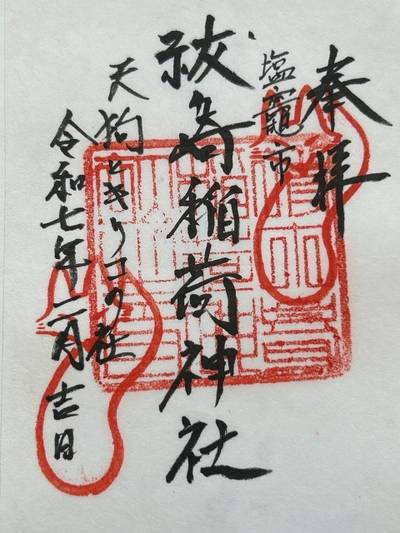 奉拝
塩竈市
祓崎稲荷神社
天狗とキリコの社
令和七年二月吉日